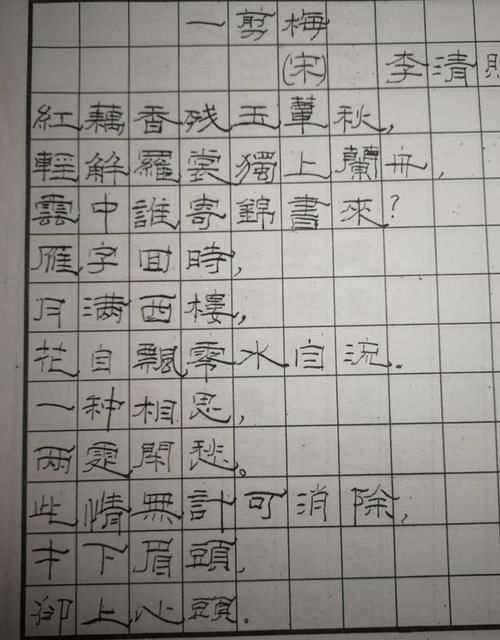 一剪梅
(宋) 李清照
紅藕香残玉簟秋,
輕解羅裳獨上蘭舟,
雲中誰寄錦書來?
雁字回時,
月满西樓,
花自飄零水自流。
一种相思,
兩处閑愁。
此情無計可消除,
才下眉頭,
卻上心頭.